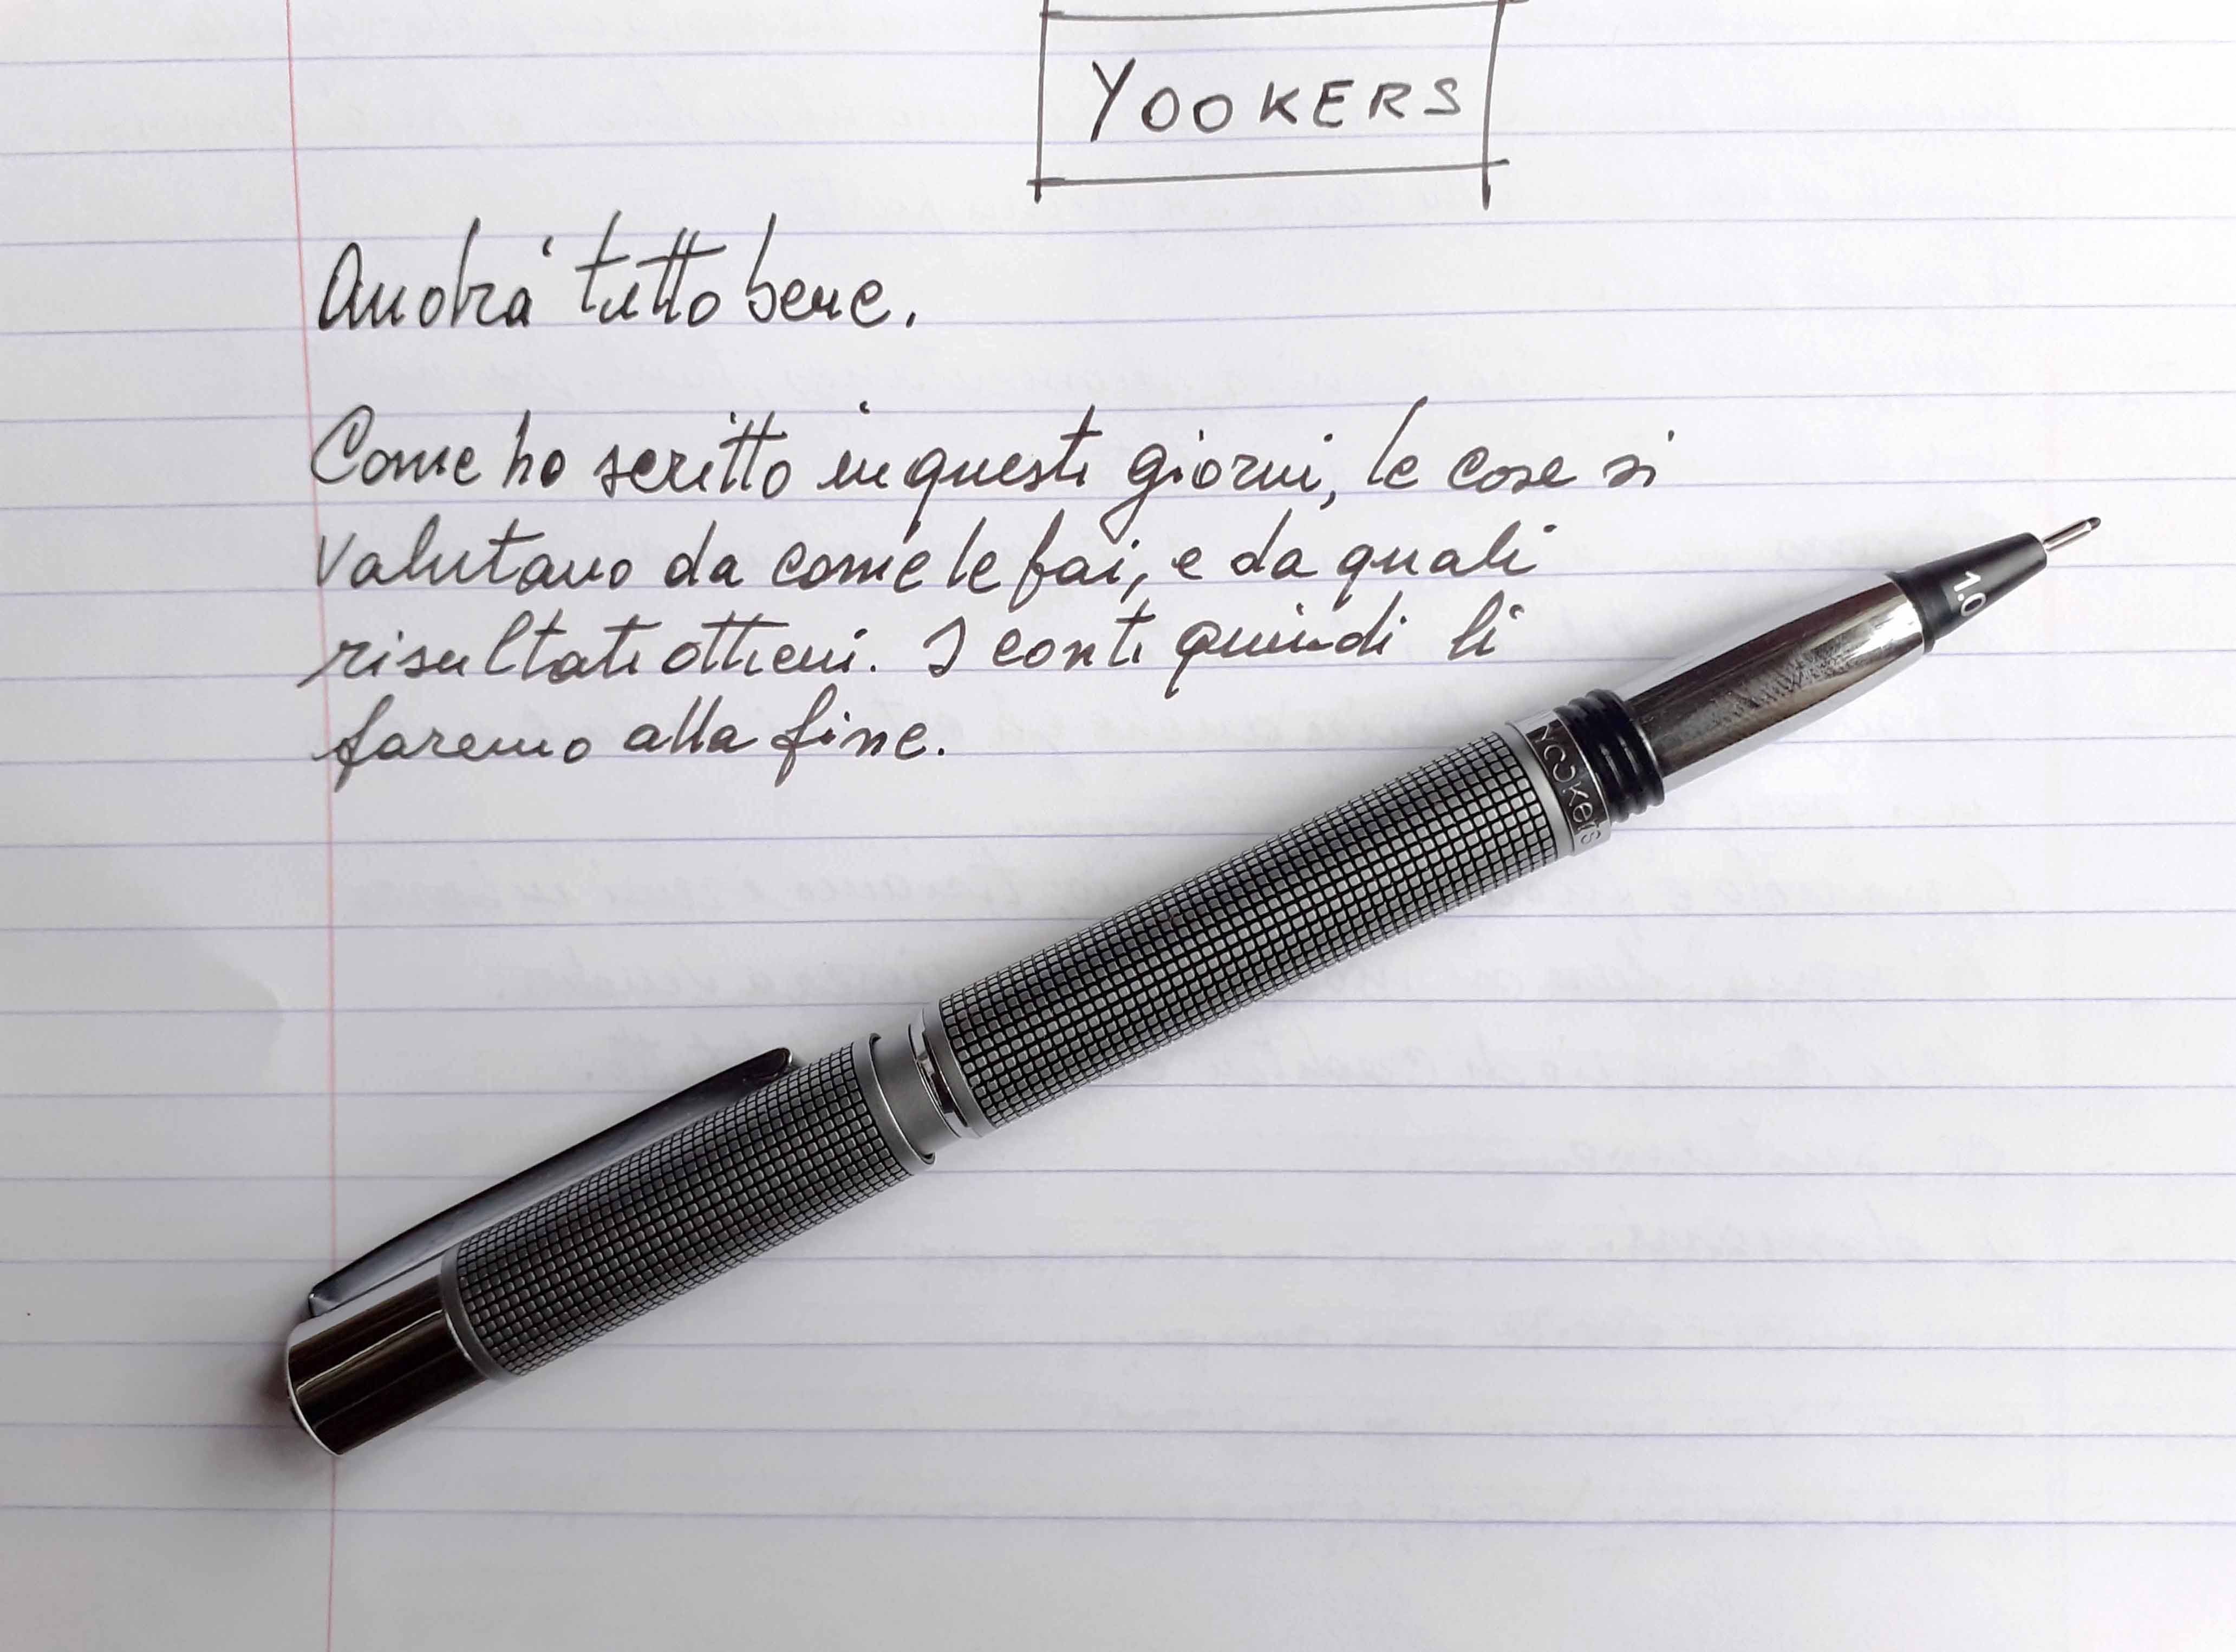 YOOKERS
Andrá tutto bene.
Come ho scritto in questi giorni, le cose si
valutano da come le fai, e da quali
risultati ottieni. I conti quindi li
faremo alla fine.
1.0
Yookers